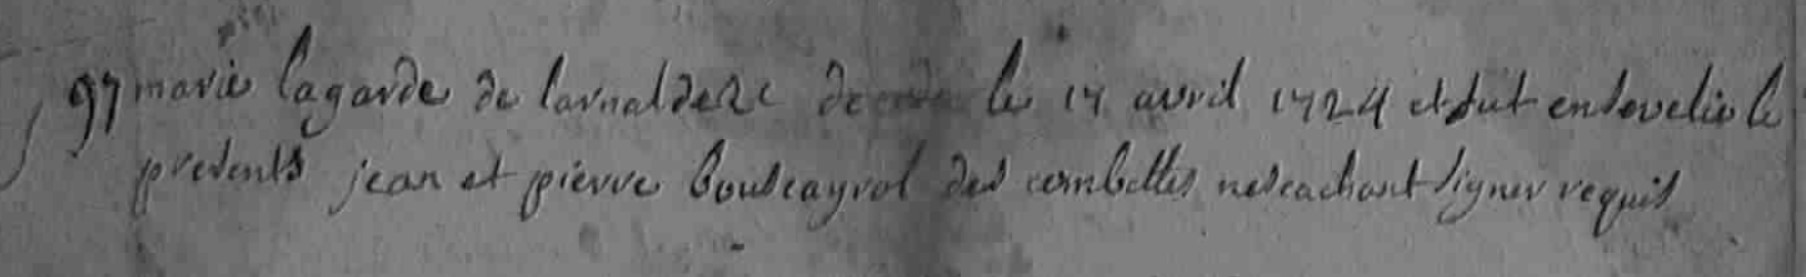 97 marie lagarde de larnaldesc deceda le 14 avril 1724 et fut ensevelie le
presents jean et pierre bouscayrol des combettes nescachant signer requis